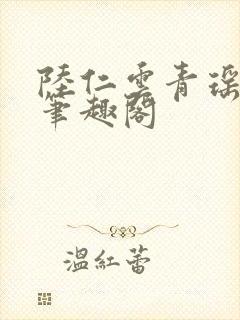 陸仁雲青瑶
筆趣閣
溫紅蕾